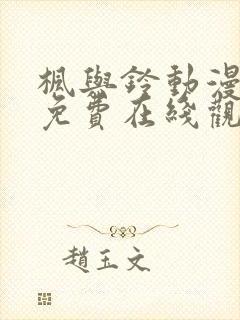 楓與鈴動漫
免費在綫觀
趙玉文